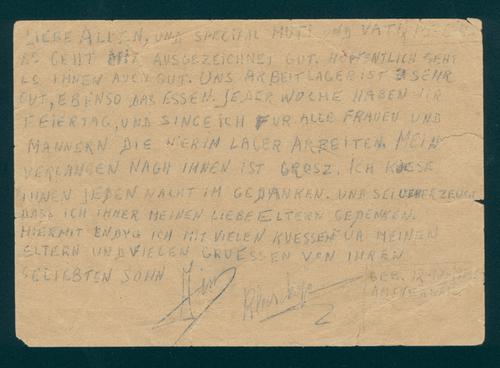 LIEBE ALLEN, UND SPECIAL MUTI UND VATI
ES GEHT MIR AUSGEZEICHNET GUT. HOFFENTLICH GEHT
ES IHNEN AUCH GUT. UNS ARBEITLAGER IST SEHR
GUT, EBENSO DAS ESSEN. JEDER WOCHE HABEN WIR
FEIERTAG, UND SINGE ICH FUR ALLE FRAUEN UND
MANNERN DIE HIER IN LAGER ARBEITEN. MEIN
VERLANGEN NACH IHNEN IST GROSZ. ICH KUESSE
IHNEN JEDEN NACHT IM GEDANKEN. UND SEI UEBERZEUGT
DASS ICH IMMER MEINEN LIEBE ELTERN GEDENKEN.
HIERMIT ENDYG ICH MIT VIELEN KUESSEN VA MEINEN
ELTERN UND VIELEN GRUESSEN VON IHREN
GELIEBTEN SOHN
GEB. 12
AMSTERDAM